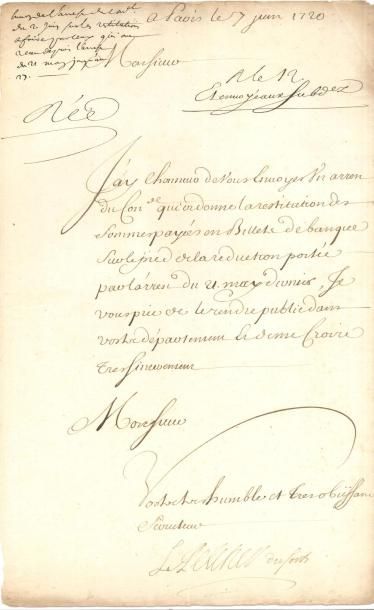 a Paris le 7 juin 1720
Monsieur
R le 12
Et envoyé aux subdez
Rée
J'ay l'honneur de vous envoyer un arrest
du Con.el qui ordonne la restitution des
sommes payées en Billets de banque
sur le pied de la reduction portée
par l'arrest du 21 may dernier, Je
vous prie de le rendre public dans
vostre departement et de me croire
tres sincerement
Monsieur
Vostre tres humble et tres obeissant
serviteur
Le Pelletier des forts